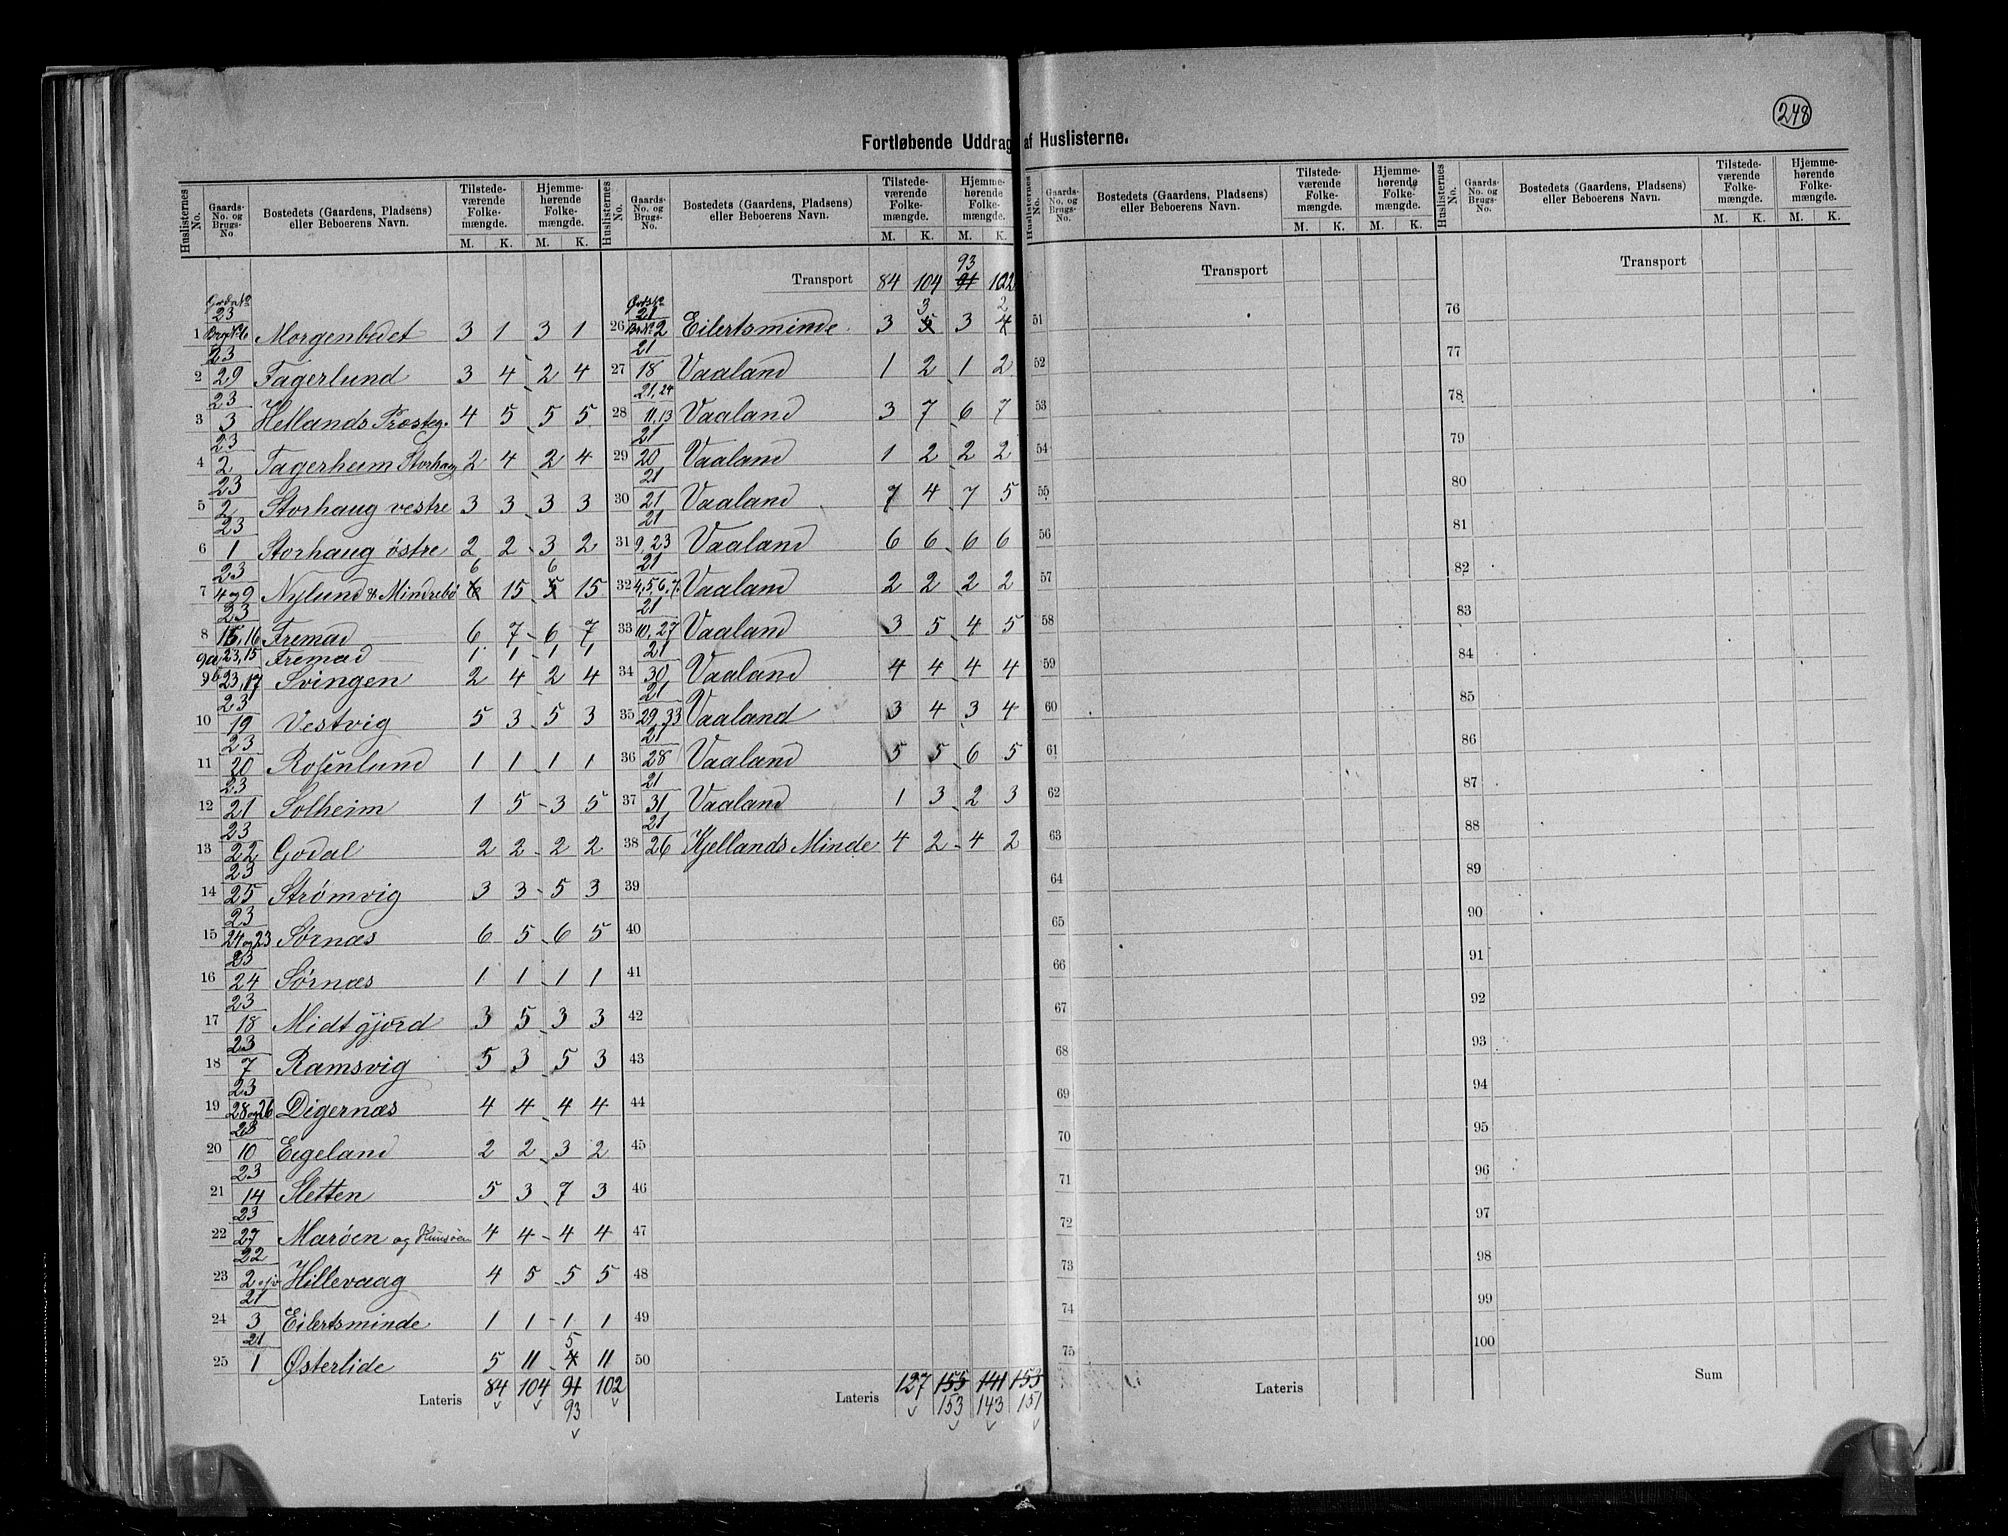 248
Fortløbende Uddrag af Huslisterne.
Huslisternes No. | Gaards-No. og Brugs-No. | Bostedets (Gaardens, Pladsens) eller Beboerens Navn. | Tilstedeværende Folkemængde. M. K. | Hjemmehørende Folkemængde. M. K.
1 | 23 Brgs No 6 | Morgenbedet | 3 | 1 | 3 | 1
2 | 23 29 | Fagerlund | 3 | 4 | 2 | 4
3 | 23 3 | Hetlands Præsteg. | 4 | 5 | 5 | 5
4 | 23 2 | Fagerheim Storhaug | 2 | 4 | 2 | 4
5 | 23 2 | Storhaug vestre | 3 | 3 | 3 | 3
6 | 23 1 | Storhaug østre | 2 | 2 | 3 | 2
7 | 23 4 og 9 | Nylund & Mindrebø | 6 | 15 | 5 6 | 15
8 | 23 15, 16 | Fremad | 6 | 7 | 6 | 7
9a | 23, 15 | Fremad | 1 | 1 | 1 | 1
9b | 23, 17 | Svingen | 2 | 4 | 2 | 4
10 | 23 19 | Vestvig | 5 | 3 | 5 | 3
11 | 23 20 | Rosenlund | 1 | 1 | 1 | 1
12 | 23 21 | Solheim | 1 | 5 | 3 | 5
13 | 23 22 | Godal | 2 | 2 | 2 | 2
14 | 23 25 | Strømvig | 3 | 3 | 5 | 3
15 | 23 24 og 23 | Sørnæs | 6 | 5 | 6 | 5
16 | 23 24 | Sørnæs | 1 | 1 | 1 | 1
17 | 23 18 | Midtgjord | 3 | 5 | 3 | 3
18 | 23 7 | Ramsvig | 5 | 3 | 5 | 3
19 | 23 28 og 26 | Digernæs | 4 | 4 | 4 | 4
20 | 23 10 | Eigeland | 2 | 2 | 3 | 2
21 | 23 14 | Sletten | 5 | 3 | 7 | 3
22 | 23 27 | Marøen og | 4 | 4 | 4 | 4
23 | 22 2 | Hillevaag | 4 | 5 | 5 | 5
24 | 21 3 | Eilertsminde | 1 | 1 | 1 | 1
25 | 21 1 | Østerlide | 5 | 11 | 4 5 | 11
Lateris | 84 | 104 | 91 93 | 102
Huslisternes No. | Gaards-No. og Brugs-No. | Bostedets (Gaardens, Pladsens) eller Beboerens Navn. | Tilstedeværende Folkemængde. M. K. | Hjemmehørende Folkemængde. M. K.
Transport | 84 | 104 | 91 93 | 102
26 | 21 Br No 2 | Eilertsminde | 3 | 5 3 | 3 | 4 2
27 | 21 18 | Vaaland | 1 | 2 | 1 | 2
28 | 21, 24 11, 13 | Vaaland | 3 | 7 | 6 | 7
29 | 21 20 | Vaaland | 1 | 2 | 2 | 2
30 | 21 21 | Vaaland | 7 | 4 | 7 | 5
31 | 21 9, 23 | Vaaland | 6 | 6 | 6 | 6
32 | 21 4,5,6,7. | Vaaland | 2 | 2 | 2 | 2
33 | 21 10, 27 | Vaaland | 3 | 5 | 4 | 5
34 | 21 30 | Vaaland | 4 | 4 | 4 | 4
35 | 21 29, 33 | Vaaland | 3 | 4 | 3 | 4
36 | 21 28 | Vaaland | 5 | 5 | 6 | 5
37 | 21 31 | Vaaland | 1 | 3 | 2 | 3
38 | 21 26 | Kjellands Minde | 4 | 2 | 4 | 2
39
40
41
42
43
44
45
46
47
48
49
50
Lateris | 127 | 155 153 | 141 143 | 153 151
Huslisternes No. | Gaards-No. og Brugs-No. | Bostedets (Gaardens, Pladsens) eller Beboerens Navn. | Tilstedeværende Folkemængde. M. K. | Hjemmehørende Folkemængde. M. K.
Transport
51
52
53
54
55
56
57
58
59
60
61
62
63
64
65
66
67
68
69
70
71
72
73
74
75
Lateris
Huslisternes No. | Gaards-No. og Brugs-No. | Bostedets (Gaardens, Pladsens) eller Beboerens Navn. | Tilstedeværende Folkemængde. M. K. | Hjemmehørende Folkemængde. M. K.
Transport
76
77
78
79
80
81
82
83
84
85
86
87
88
89
90
91
92
93
94
95
96
97
98
99
100
Sum